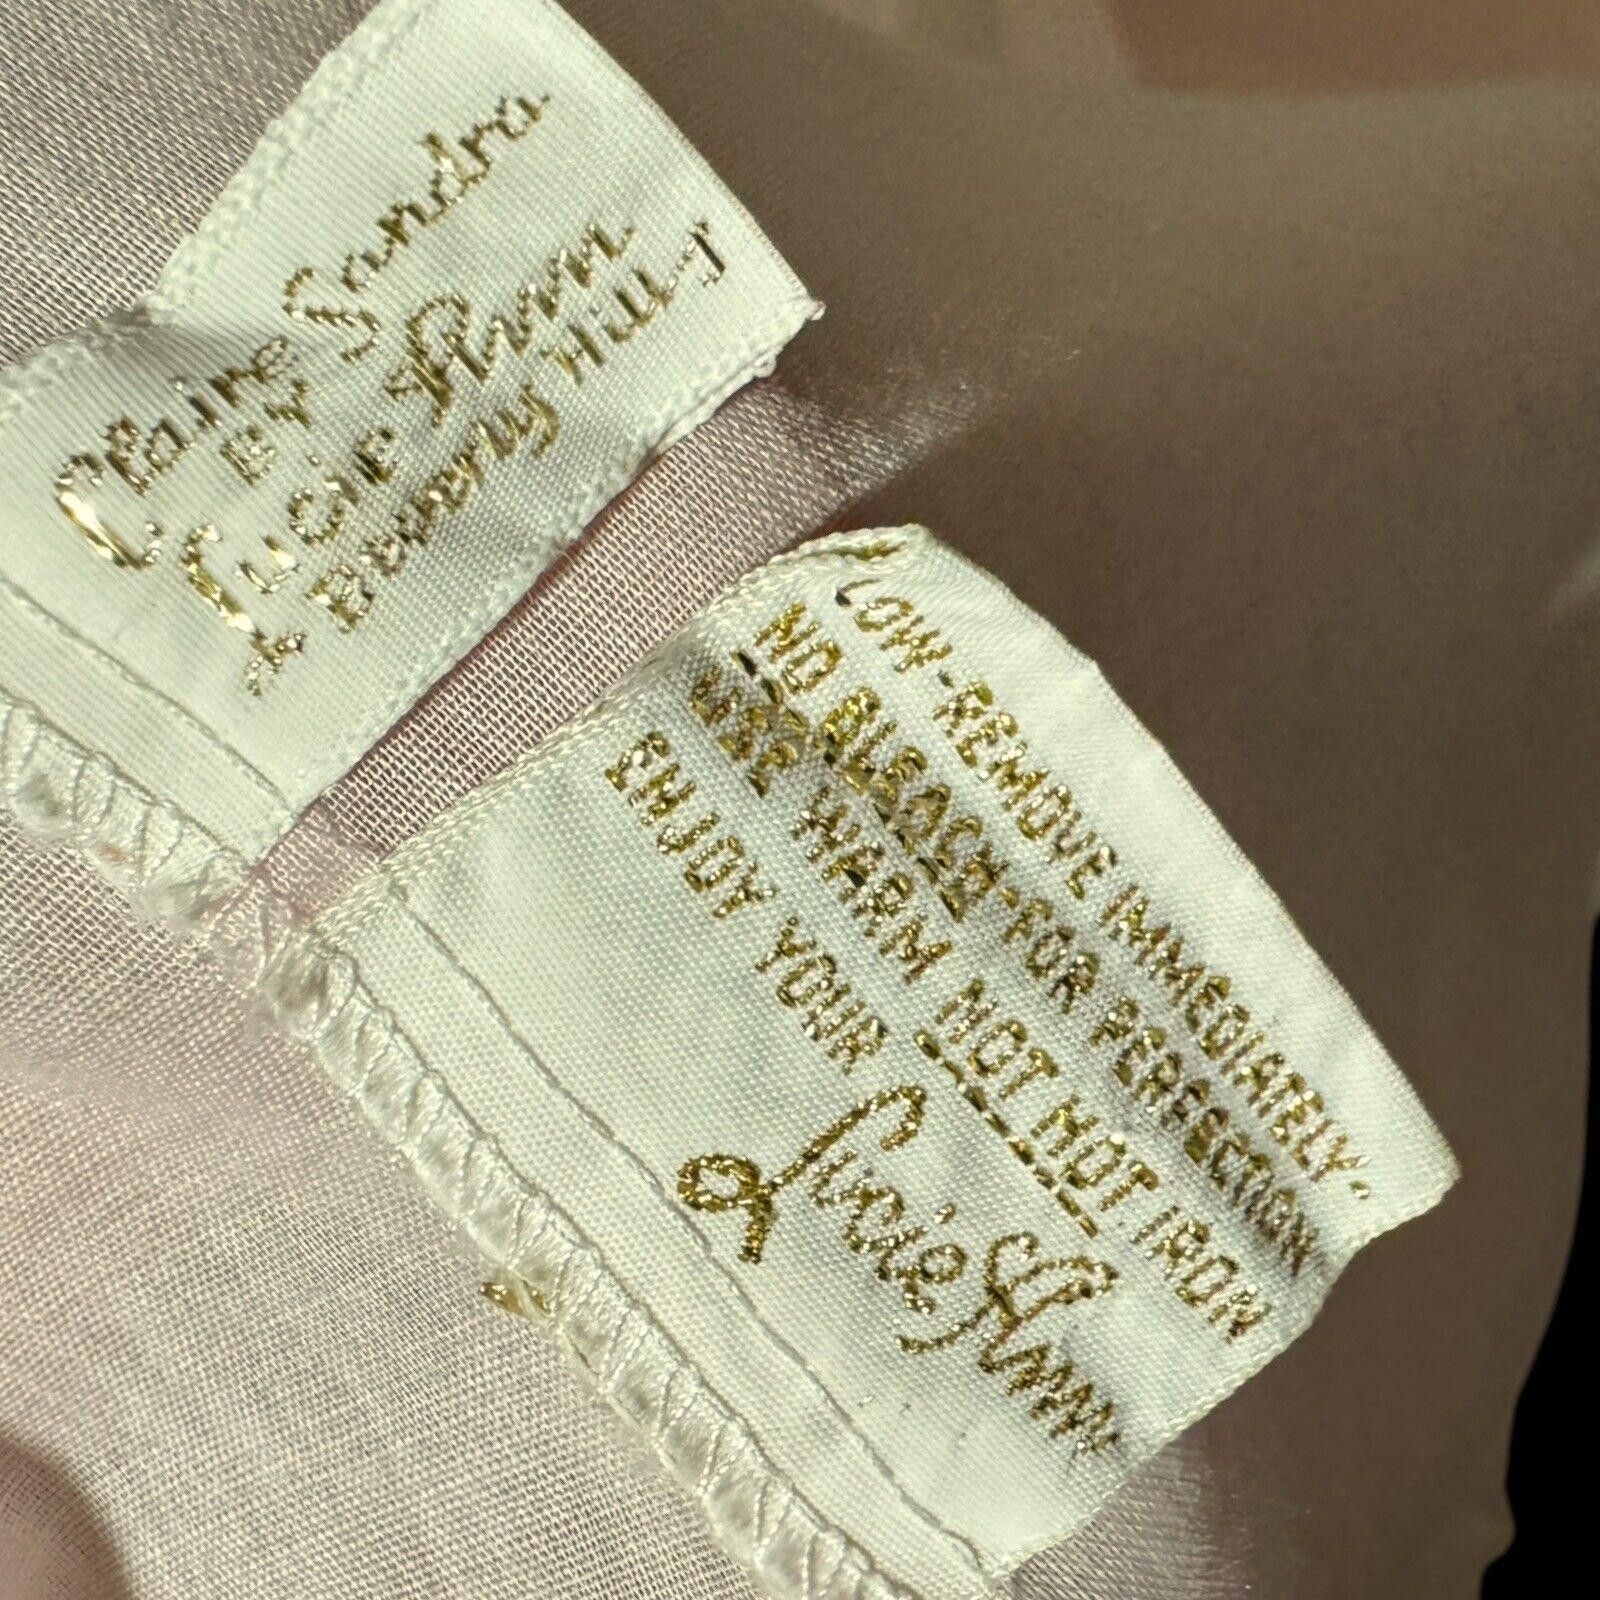 Claire Sandra
BY
LUCIE Ann
Beverly HILLS
LOW-REMOVE IMMEDIATELY-
NO BLEACH-FOR PERFECTION
USE WARM NOT HOT IRON
ENJOY YOUR
Lucie Ann